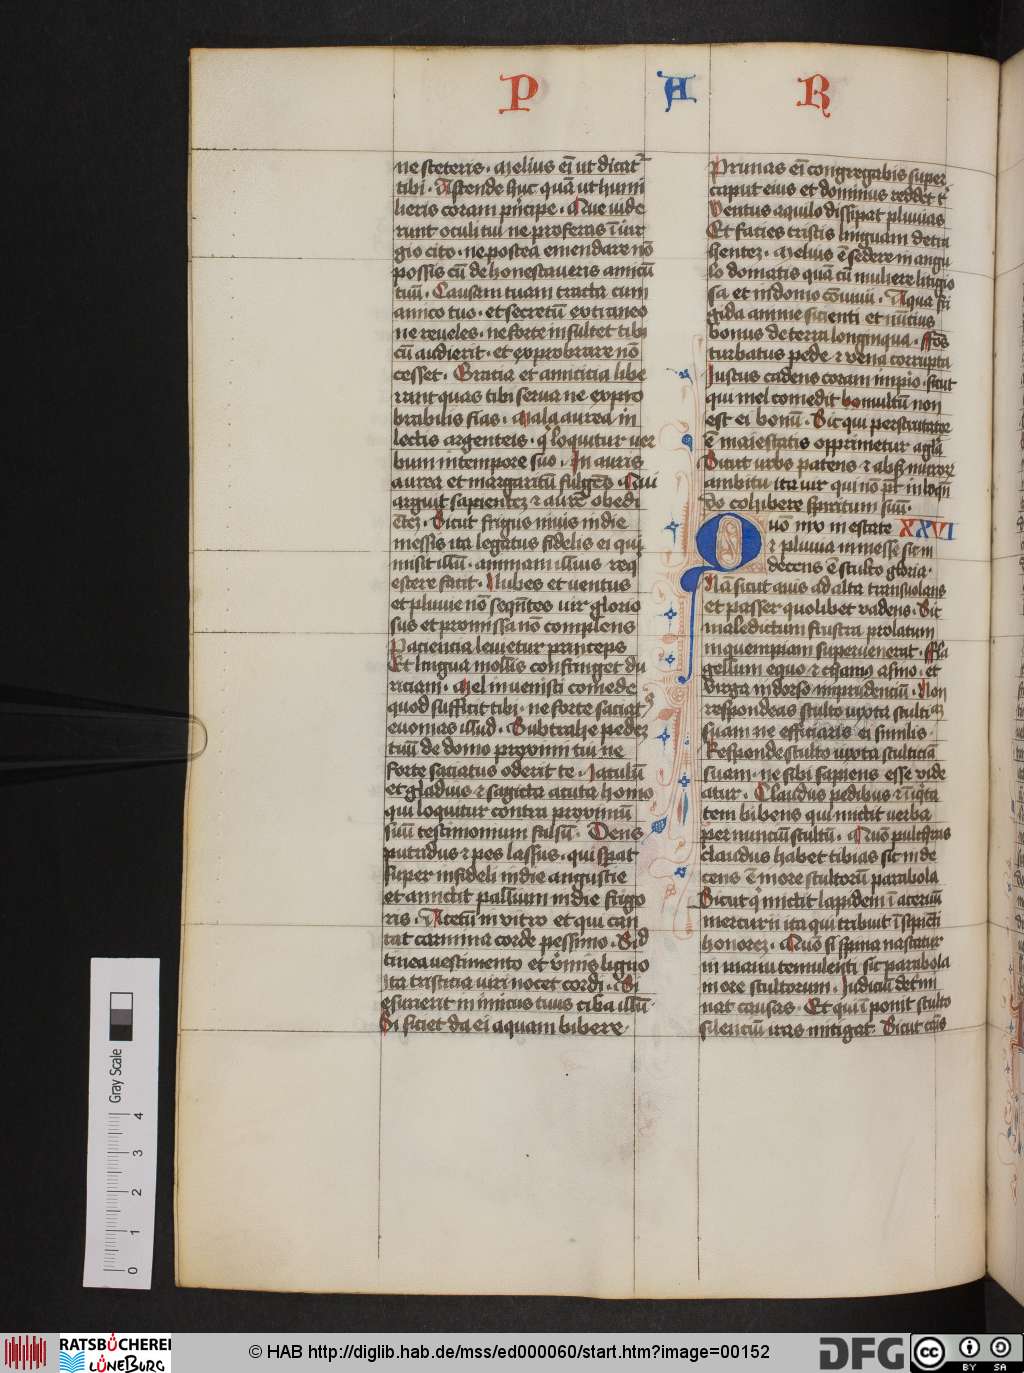 P A R
ne steteris · Melius eī ut dicat᷑
tibi · Astende huc quā ut humi
lieris coram pͥncipe · Que vide
runt oculi tui ne proferas ī iur
gio cito · ne postea emendare nō
possis cū dehonestaveris amicū
tuū · Causam tuam tracta cum
amico tuo · et secretū extraneo
ne reveles · ne forte insultet tibi
cū audierit · et exprobrare nō
cesset · Gratia et amicicia libe
rant quas tibi serva ne expro
brabilis fias · Mala aurea in
lectis argenteis · qͥ loquitur ver
bum in tempore suo · In auris
aurea et margaritū fulgēs · Qui
arguit sapientez ⁊ aurē obedi
ētez · Sicut frigus nivis in die
messis ita legatus fidelis ei qui
misit illū · animam illius req
escere facit · Nubes et ventus
et pluvie nō seqn̄tes vir glorio
sus et promissa nō complens
Paciencia lenietur princeps
Et lingua mollis confringet du
riciam · Mel invenisti comede
quod sufficit tibi · ne forte saciat᷑
evomas illud · Subtrahe pedez
tuū de domo proximi tui ne
forte saciatus oderit te · Iaculū
et gladius ⁊ sagitta acuta homo
qui loquitur contra proximū
suū testimonium falsū · Dens
putridus ⁊ pes lassus · qui sperat
super infideli in die angustie
et amittit pallium in die frigo
ris · Acetū in vitro et qui can
tat carmina corde pessimo · Sic̄
tinea vestimento et vͥmis ligno
ita tristitia viri nocet cordi · Si
esurierit inimicus tuus ciba illū ·
Si sitiet da ei aquam bibere ·
Prunas eī congregabis super
caput eius et dominus reddet tͥ
Ventus aquilo dissipat pluvias
Et facies tristis linguam detra
hentez · Melius ē sedere in angu
lo domatis quā cū muliere litigio
sa et in domo cōmuni · Aqua fri
gida anime sicienti et nūtius
bonus de terra longinqua · Fōs
turbatus pede ⁊ vena corrupta
Iustus cadens coram impio · sicut
qui mel comedit i multū non
est ei bonū · Sic qui perscrutator
ē maiestatis opprimetur a glīa
Sicut urbs patens ⁊ absqꝫ muroꝝ
ambitu ita vir qui nō pt̄ in loqn̄
do cohibere spiritum suū ·
Quō nix in estate XXVI
⁊ pluvia in messē sic in
decens ē stulto gloria ·
Nā sicut avis ad alta transvolans
et passer quolibet vadens · Sic
maledictum frustra prolatum
in quempiam superveniet · Fla
gellum equo ⁊ chamo asino · et
virga in dorso imprudenciū · Non
respondeas stulto iuxta stulticiā
suam ne efficiaris ei similis ·
Responde stulto iuxta stulticiā
suam · ne sibi sapiens esse vide
atur · Claudus pedibus ⁊ īqͥta
tem bibens qui mittit verba
per nuncium stultū · Quō pulcͣras
claudus habet tibias sic inde
cens ē in ore stultorū parabola
Sicut qͥ mittit lapidem ī acervū
mercurii ita qui tribuit īsipiēti
honorez · Quō si spina nascatur
in manu temulenti sic parabola
in ore stultorum · Iudiciū determi
nat causas · Et qui īponit stulto
silenciū iras mitigat · Sicut cāis
Gray Scale
0 1 2 3 4
RATSBÜCHEREI LÜNEBURG
© HAB http://diglib.hab.de/mss/ed000060/start.htm?image=00152
DFG
cc BY SA